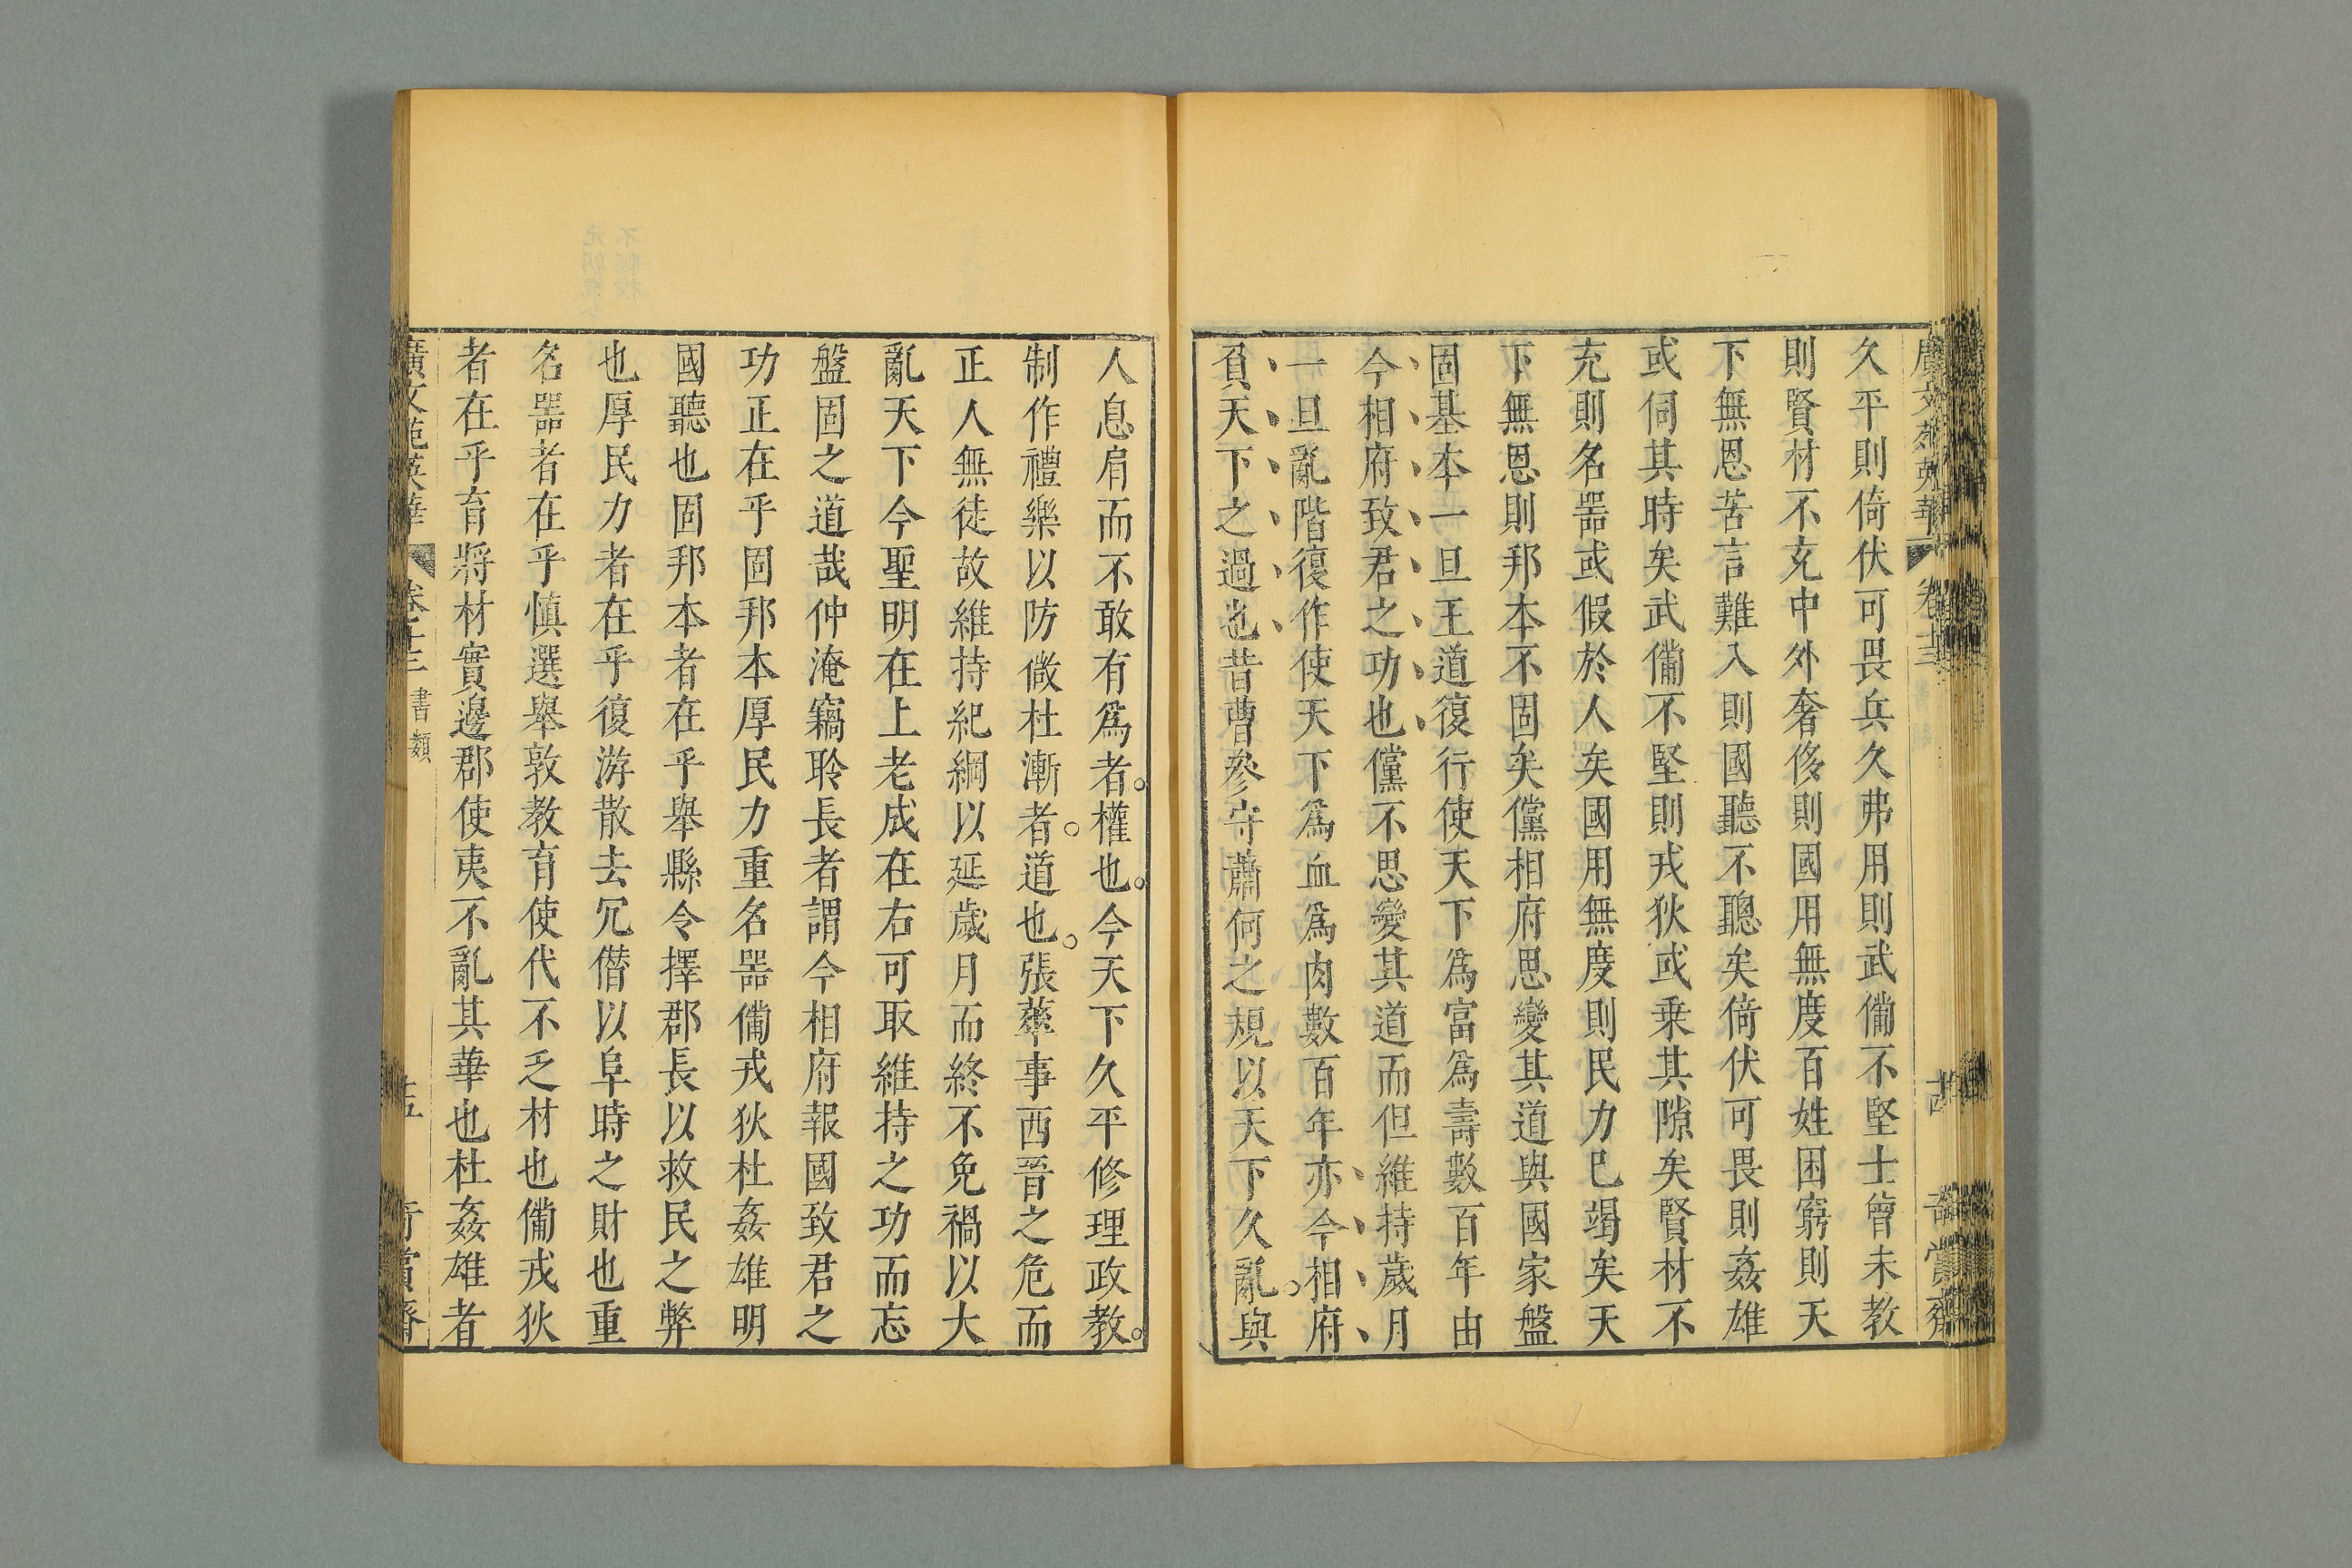 久平則倚伏可畏兵久弗用則武備不堅士曾未教
則賢材不充中外奢侈則國用無度百姓困窮則天
下無恩苦言難入則國聽不聰矣倚伏可畏則姦雄
或伺其時矣武備不堅則戎狄或乗其隙矣賢材不
充則名噐或假於人矣國用無度則民力已竭矣天
下無恩則邦本不固矣儻相府思變其道與國家盤
固基本一旦王道復行使天下爲富爲壽數百年由
今相府致君之功也儻不思變其道而但維持歲月
一旦亂階復作使天下爲血爲肉數百年亦今相府
負天下之過也昔曹參守蕭何之規以天下久亂與
人息肩而不敢有爲者。權也。今天下久平修理政教。
制作禮樂以防微杜漸者。道也。張華事西晉之危而
正人無徒故維持紀綱以延歲月而終不免禍以大
亂天下今聖明在上老成在右可取維持之功而忘
盤固之道哉仲淹竊聆長者謂今相府報國致君之
功正在乎固邦本厚民力重名噐備戎狄杜姦雄明
國聽也固邦本者在乎舉縣令擇郡長以救民之弊
也厚民力者在乎復游散去冗僭以阜時之財也重
名噐者在乎慎選舉敦教育使代不乏材也備戎狄
者在乎育將材實邊郡使夷不亂其華也杜姦雄者
書類